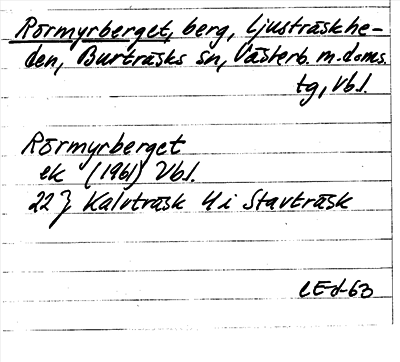 Rörmyrberget, berg, Ljusträskhe-
den, Burträsks sn, Västerb. m. doms.
tg, Vb.l.
Rörmyrberget
ek (1961) Vb.l.
22 } Kalvträsk 4i Stavträsk
CEd-63